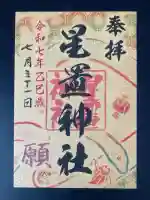 奉拝
星置神社
令和七年乙巳歳
七月三十一日
願